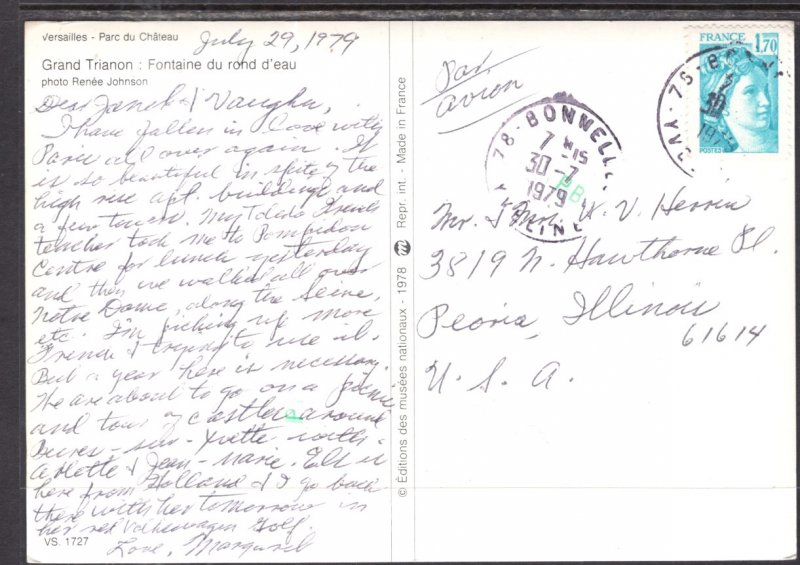 Versailles - Parc du Château
July 29, 1979
Grand Trianon : Fontaine du rond d'eau
photo Renée Johnson
Dear Janet & Vaughn,
I have fallen in love with
Paris all over again. It
is so beautiful in spite of the
high rise apt. buildings and
a few towers. My Toledo French
teacher took me to Pompidou
Centre for lunch yesterday
and then we walked all over
Notre Dame, along the Seine,
etc. I'm picking up more
French & trying to use it.
But a year here is necessary.
We are about to go on a picnic
and tour of castles around
Bures-sur-Yvette with
Arlette & Jean-Marie. Elt is
here from Holland & I go back
there with her tomorrow in
her red Volkswagen Golf.
Love, Margaret
VS. 1727
© Éditions des musées nationaux - 1978
Repr. int. - Made in France
Par
avion
78 - BONNELLES
7 H 15
30-7
1979
YVELINES
FRANCE
1,70
POSTES
1979
Mr. & Mrs. W. V. Herrin
3819 N. Hawthorne Pl.
Peoria, Illinois
61614
U. S. A.